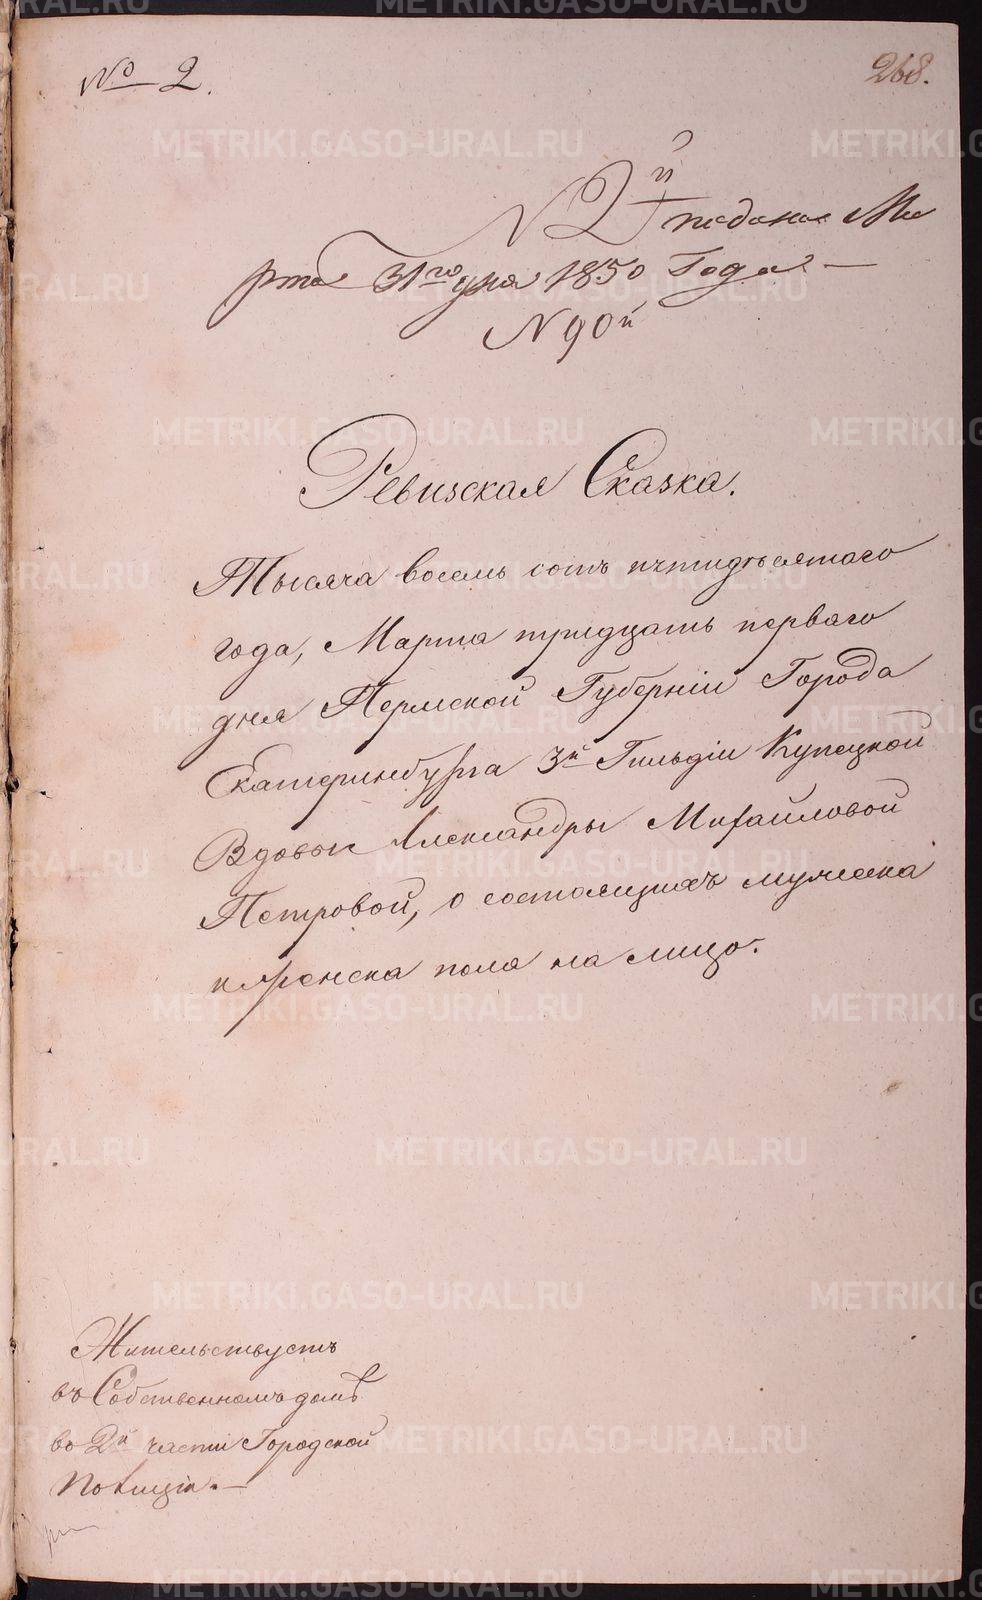 № 2.
268.
№ 2й
подана Ма
рта 31го дня 1850 Года. —
N 90й
Ревизская Сказка.
Тысяча восемь сотъ пятидесятаго
года, Марта тридцать перваго
дня Пермской Губерніи Города
Екатеринбурга 3й Гильдіи Купецкой
Вдовы Александры Михайловой
Петровой, о состоящихъ мужеска
и женска пола на лицо.
Жительствуетъ
въ Собственномъ домѣ
во 2й части Городской
Полиціи. —
METRIKI.GASO-URAL.RU